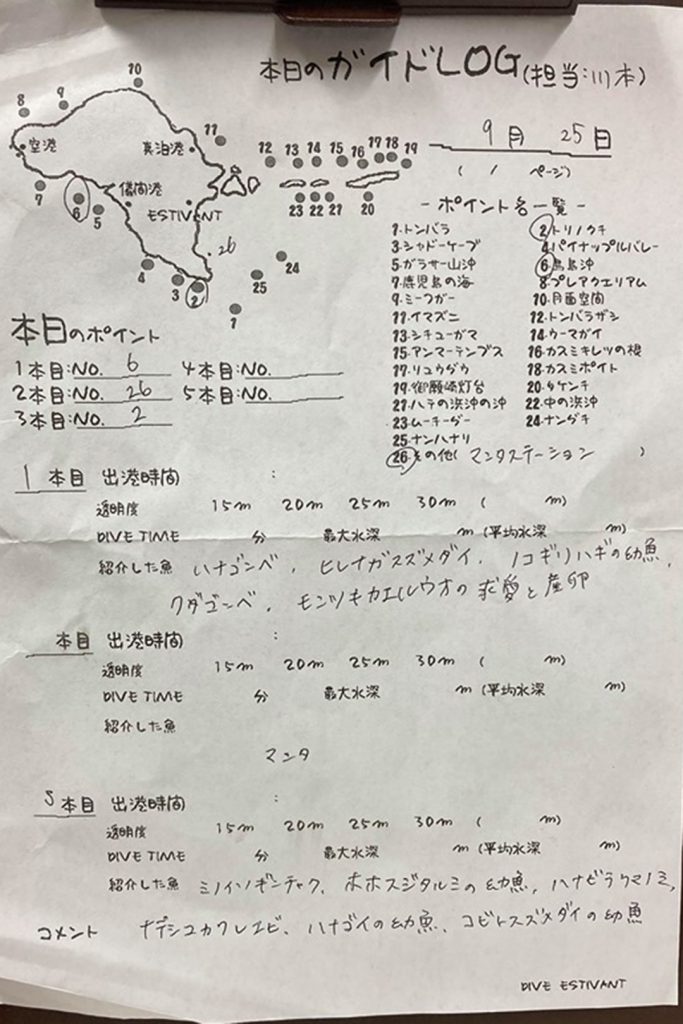 本日のガイドLOG(担当:川本)
9月 25日
( / ページ)
10
9
8
空港
真泊港
11
12 13 14 15 16 17 18 19
23 22 21 20
7
6
5
儀間港
ESTIVANT
26
24
25
4
3
2
1
- ポイント名一覧 -
1.トンバラ 2.トリノクチ
3.シャドーケーブ 4.パイナップルバレー
5.ガラサー山沖 6.鳥島沖
7.鹿児島の海 8.プレアクエリアム
9.ミーフガー 10.月面空間
11.イマズニ 12.トンバラザシ
13.シチューガマ 14.ウーマガイ
15.アンマーテンプス 16.カスミキレツの根
17.リュウダウ 18.カスミポイト
19.御願崎灯台 20.タケンチ
21.ハテの浜沖の沖 22.中の浜沖
23.ムーチーダー 24.ナンダキ
25.ナンハナリ
26.その他( マンタステーション )
本日のポイント
1本目:NO. 6 4本目:NO.
2本目:NO. 26 5本目:NO.
3本目:NO. 2
1 本目 出港時間 :
透明度 15m 20m 25m 30m ( m)
DIVE TIME 分 最大水深 m (平均水深 m)
紹介した魚 ハナゴンベ, ヒレナガスズメダイ, ノコギリハギの幼魚,
クダゴンベ, モンツキカエルウオの求愛と産卵
本目 出港時間 :
透明度 15m 20m 25m 30m ( m)
DIVE TIME 分 最大水深 m (平均水深 m)
紹介した魚
マンタ
本目 出港時間 :
透明度 15m 20m 25m 30m ( m)
DIVE TIME 分 最大水深 m (平均水深 m)
紹介した魚 ミノイソギンチャク, ホホスジタルミの幼魚, ハナビラクマノミ,
コメント ナデシコカクレエビ、ハナゴイの幼魚、コビトスズメダイの幼魚
DIVE ESTIVANT